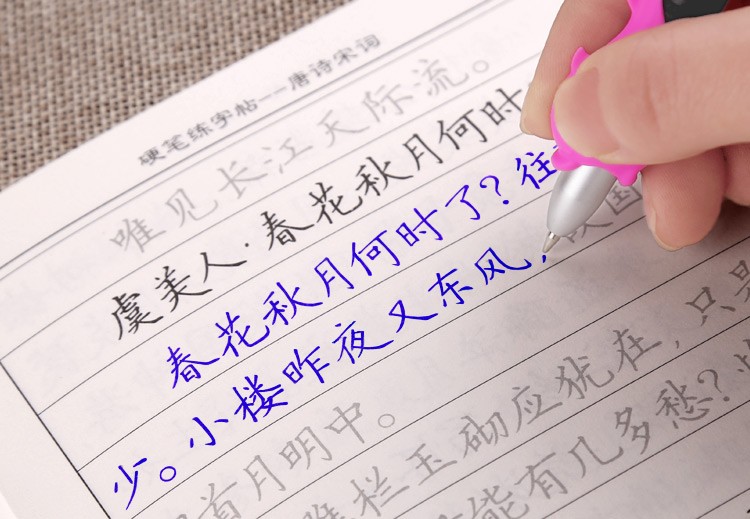 硬笔练字帖--唐诗宋词
唯见长江天际流。
虞美人·春花秋月何时
春花秋月何时了?往
少。小楼昨夜又东风,故国
首月明中。
雕栏玉砌应犹在,只是
能有几多愁?